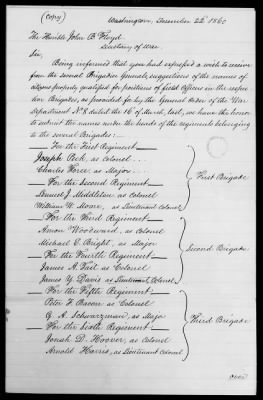 (Copy)
Washington, December 22d 1860
The Honble John B Floyd
Secretary of War
Sir,
Being informed that you had expressed a wish to receive
from the several Brigadier Generals, suggestions of the names of
citizens properly qualified for positions of Field Officers in the respec-
tive Brigades, as provided for by the General Order of the War
Department No 8 dated the 16th of March, last, we have the honor
to submit the names under the heads of the regiments belonging
to the several Brigades:
For the First Regiment
Joseph Peck, as Colonel
Charles Forer as Major
For the Second Regiment
Daniel J. Middleton as Colonel
William W. Moore, as Lieutenant Colonel
First Brigade
For the Third Regiment
Amon Woodward, as Colonel
Michael C. Bright, as Major
For the Fourth Regiment
James A. Tait as Colonel
James Y. Davis as Lieutenant Colonel
Second Brigade
For the Fifth Regiment
Peter F. Bacon as Colonel
G. A. Schwarzman, as Major
For the Sixth Regiment
Jonah D. Hoover, as Colonel
Arnold Harris, as Lieutenant Colonel
Third Brigade